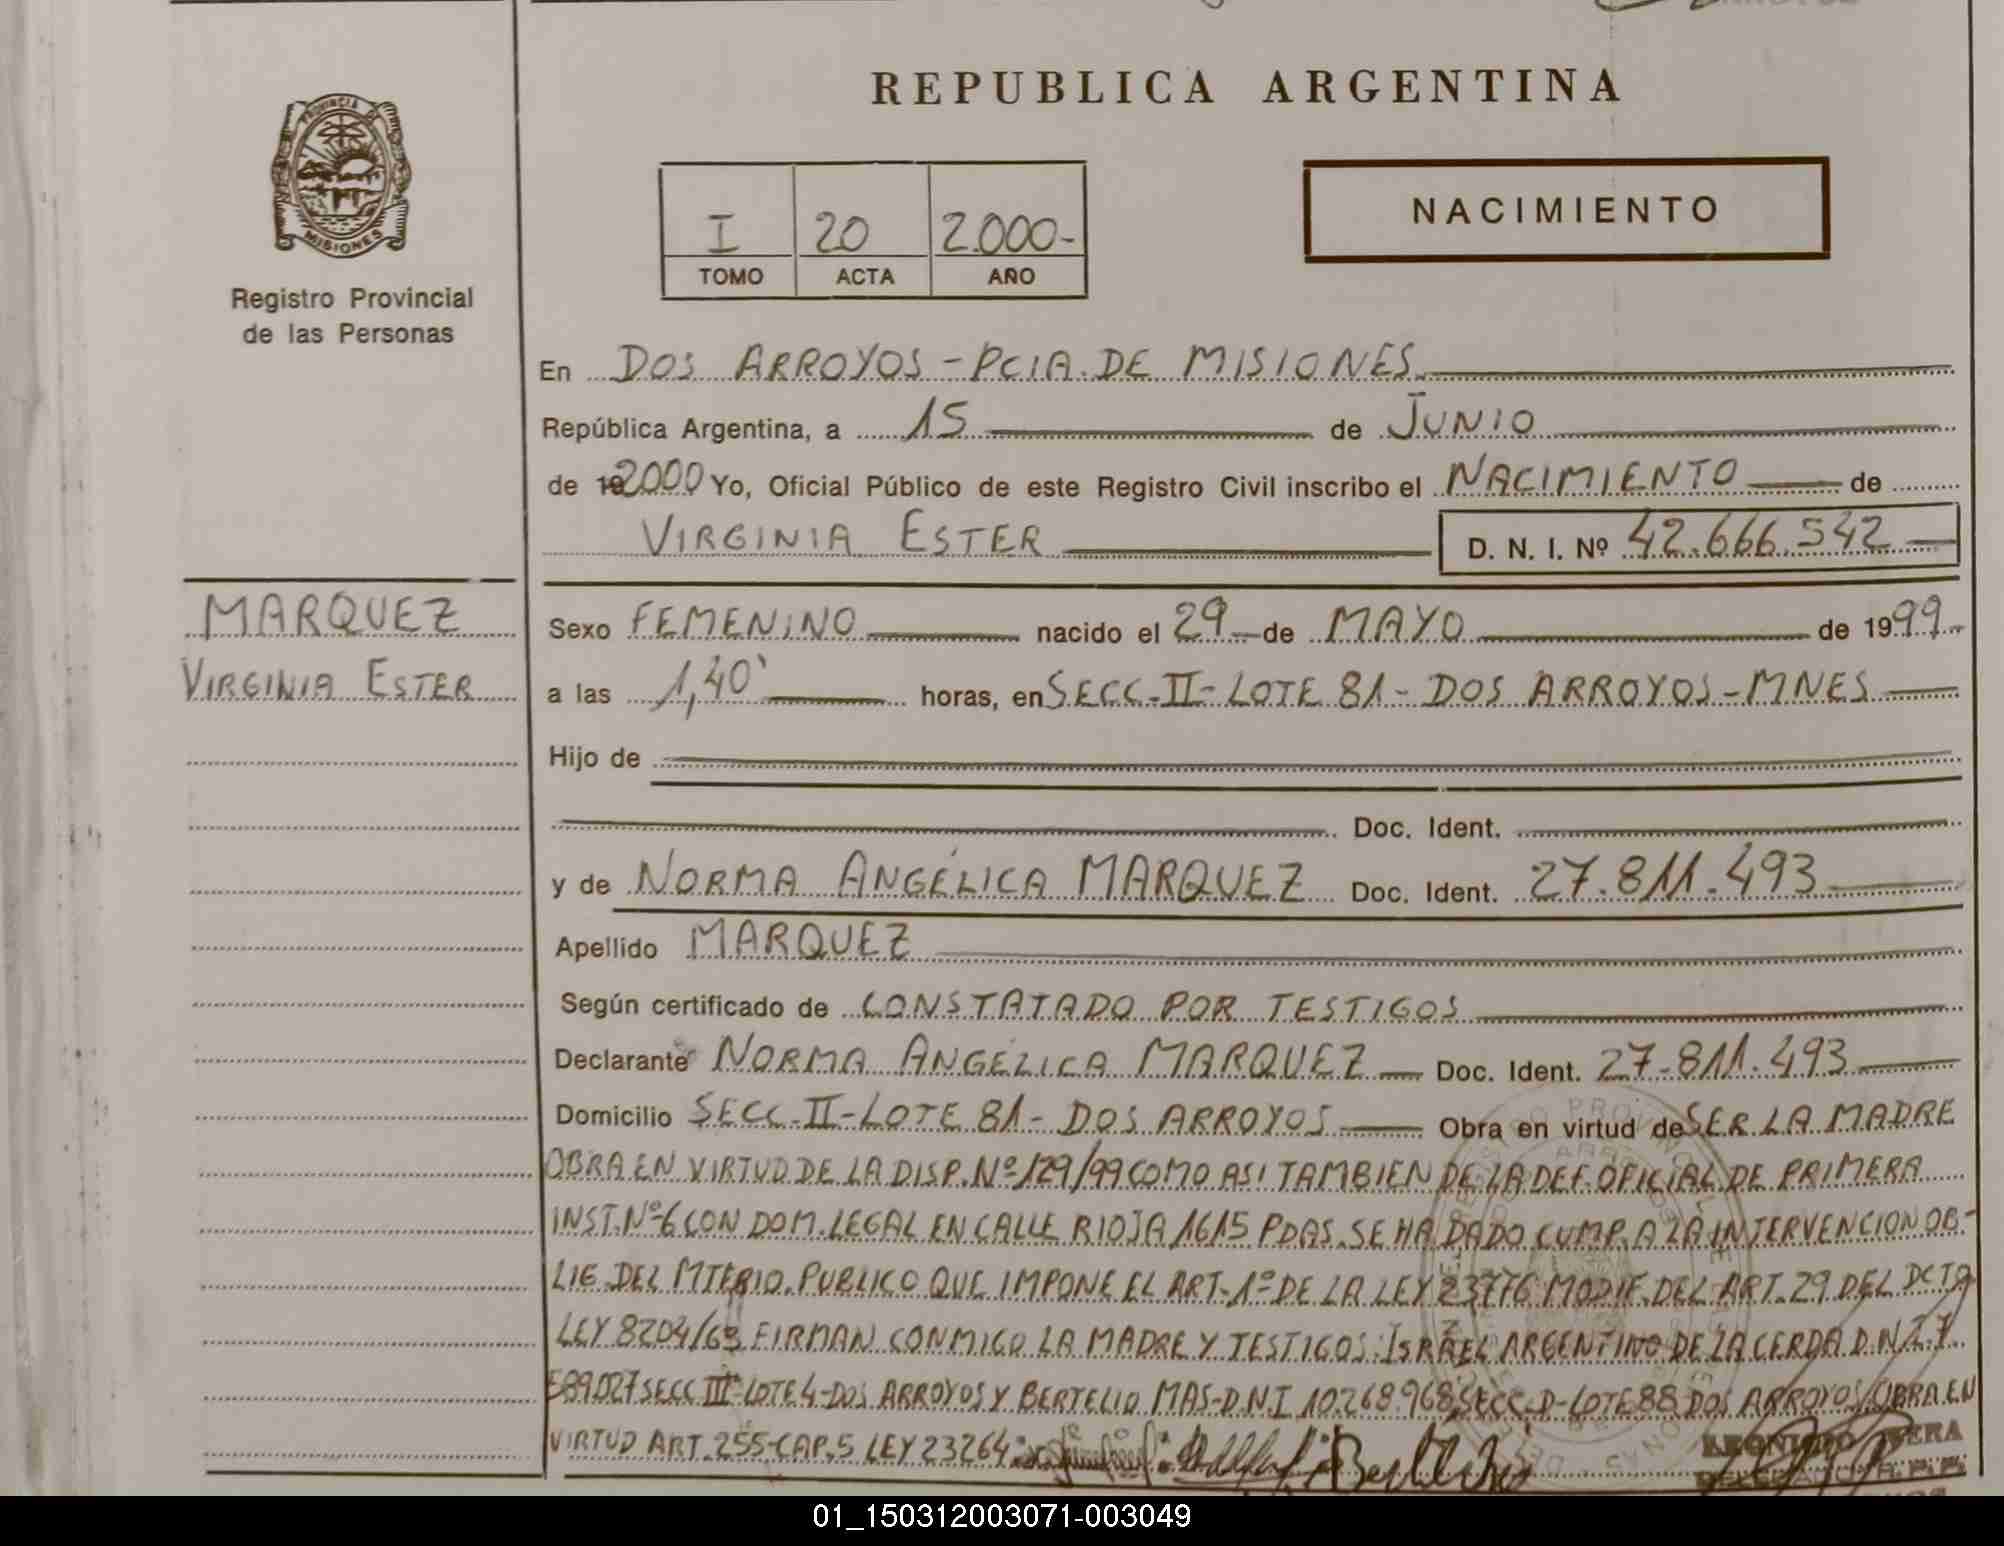 REPUBLICA ARGENTINA
PROVINCIA DE
MISIONES
Registro Provincial
de las Personas
I 20 2.000-
TOMO ACTA AÑO
NACIMIENTO
En DOS ARROYOS - PCIA. DE MISIONES.
República Argentina, a 15 de JUNIO
de 2000 Yo, Oficial Público de este Registro Civil inscribo el NACIMIENTO de
VIRGINIA ESTER D. N. I. Nº 42.666.542
MARQUEZ
VIRGINIA ESTER
Sexo FEMENINO nacido el 29 de MAYO de 1999.
a las 1,40' horas, en SECC.-II-LOTE 81- DOS ARROYOS-MNES
Hijo de
Doc. Ident.
y de NORMA ANGÉLICA MARQUEZ Doc. Ident. 27.811.493
Apellido MARQUEZ
Según certificado de CONSTATADO POR TESTIGOS
Declarante NORMA ANGÉLICA MARQUEZ Doc. Ident. 27.811.493
Domicilio SECC.-II-LOTE 81- DOS ARROYOS Obra en virtud de SER LA MADRE
OBRA EN VIRTUD DE LA DISP. Nº 129/99 COMO ASI TAMBIEN DE LA DEF. OFICIAL DE PRIMERA
INST. Nº 6 CON DOM. LEGAL EN CALLE RIOJA 1615 PDAS. SE HA DADO CUMP. A LA INTERVENCION OB-
LIG. DEL MTERIO. PUBLICO QUE IMPONE EL ART. 1º DE LA LEY 23776 MODIF. DEL ART. 29 DEL DCTO
LEY 8204/63 FIRMAN CONMIGO LA MADRE Y TESTIGOS: ISRAEL ARGENTINO DE LA CERDA D.N.I. 7.
589.027 SECC III-LOTE 4-DOS ARROYOS Y BERTELIO MAS-D.N.I 10.268.968 SECC.D-LOTE 88 DOS ARROYOS. OBRA EN
VIRTUD ART. 255-CAP.5 LEY 23264
01_150312003071-003049